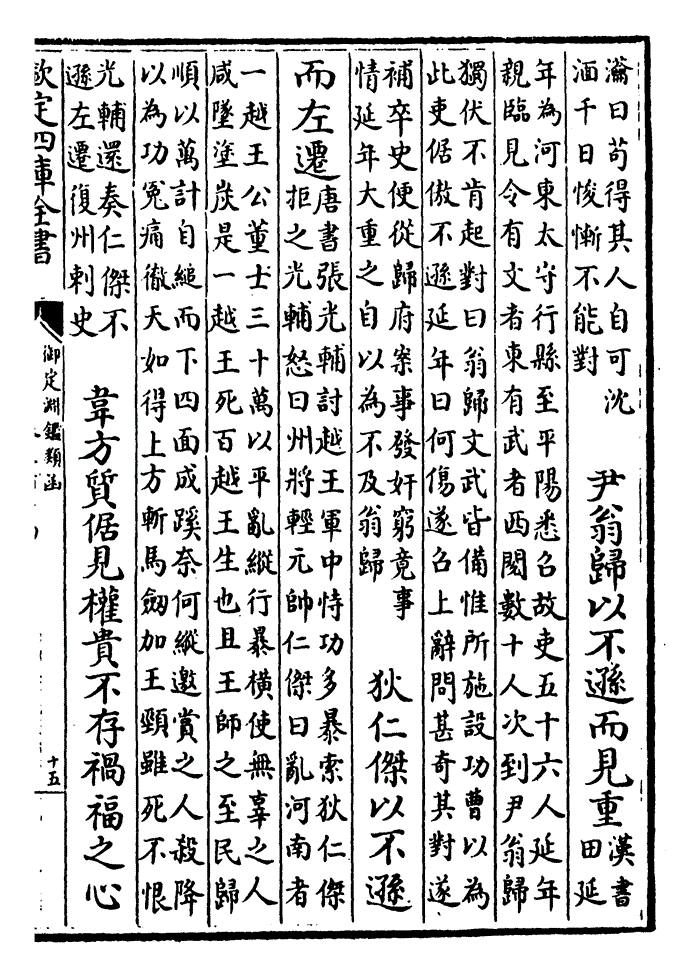 瀹曰苟得其人自可沈
湎千日悛慚不能對
尹翁歸以不遜而見重
漢書
田延
年為河東太守行縣至平陽悉召故吏五十六人延年
親臨見令有文者東有武者西閱數十人次到尹翁歸
獨伏不肯起對曰翁歸文武皆備惟所施設功曹以為
此吏倨傲不遜延年曰何傷遂召上辭問甚奇其對遂
補卒史便從歸府案事發奸窮竟事
情延年大重之自以為不及翁歸
狄仁傑以不遜
而左遷
唐書張光輔討越王軍中恃功多暴索狄仁傑
拒之光輔怒曰州將輕元帥仁傑曰亂河南者
一越王公董士三十萬以平亂縱行暴橫使無辜之人
咸墜塗炭是一越王死百越王生也且王師之至民歸
順以萬計自縋而下四面成蹊奈何縱邀賞之人殺降
以為功冤痛徹天如得上方斬馬劔加王頸雖死不恨
光輔還奏仁傑不
遜左遷復州刺史
韋方質倨見權貴不存禍福之心
欽定四庫全書
御定淵鑑類函
十五